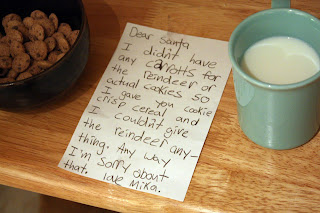 Dear Santa
I didn't have
any carrotts for
the reindeer or
actual cookies so
I gave you cookie
crisp cereal and
I couldn't give
the reindeer any-
thing. Any way
I'm sorry about
that. love Mika.